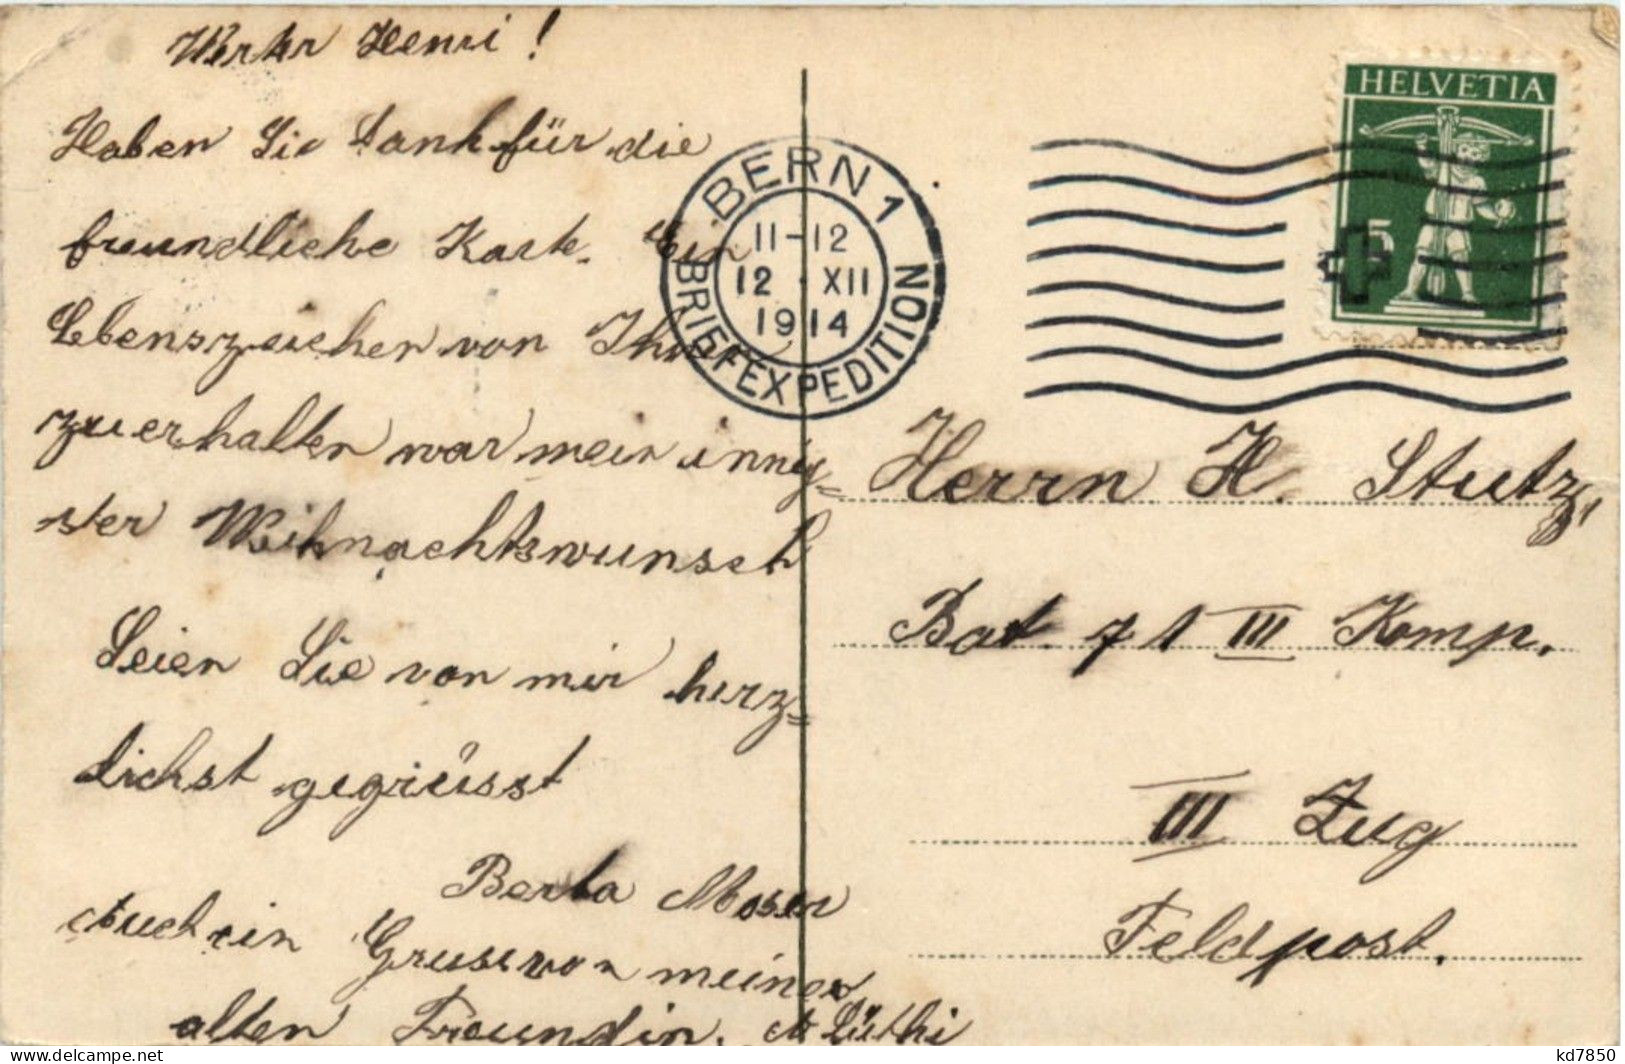 Werter Henri!
Haben Sie Dank für die
freundliche Karte. Ein
Lebenszeichen von Ihnen
zu erhalten war mein innig=
ster Weihnachtswunsch
Seien Sie von mir herz=
lichst gegrüsst
Berta Moser
Auch ein Gruss von meiner
alten Freundin. M Lüthi
BERN 1
11-12
12 · XII
1914
BRIEFEXPEDITION
HELVETIA
5
Herrn H. Stutz,
Bat. 71 III Komp.
III Zug
Feldpost.
kd7850